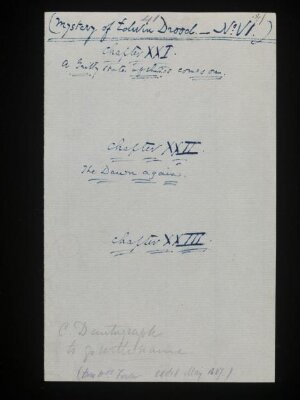 (Mystery of Edwin Drood.—No. VI.)
Chapter XXI.
A Gritty state of things comes on.
Chapter XXII.
The Dawn again.
Chapter XXIII.
C. D autograph
to go with
(from May 1887)